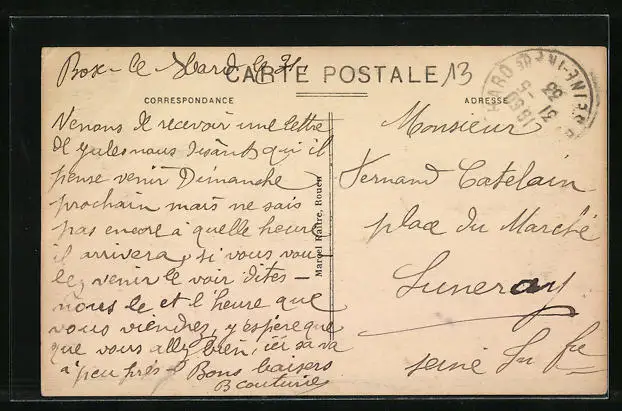 Bosc-le Hard le 31
CARTE POSTALE
13
CORRESPONDANCE
ADRESSE
Venons de recevoir une lettre
de jules nous disant qui il
pense venir Dimanche
prochain mais ne sais
pas encore à quelle heure
il arrivera, si vous vou
lez venir le voir dites-
nous le et l'heure que
vous viendrez, j'espère que
que vous allez bien, ici sa va
à peu près - Bons baisers
B Couturie
Marcel Haître, Rouen
Monsieur
Fernand Catelain
place du Marché
Luneray
seine Infre